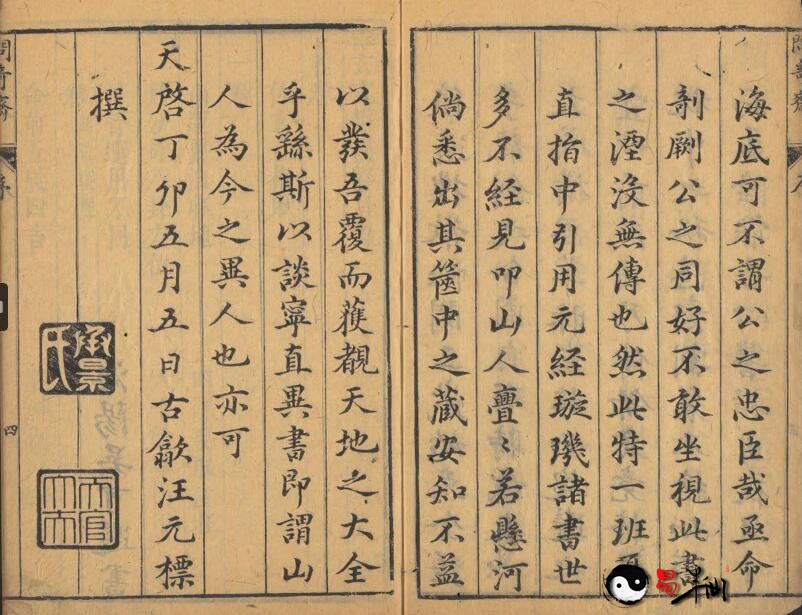 海底可不謂公之忠臣哉亟命
剞劂公之同好不敢坐視此書
之湮沒無傳也然此特一班耳
直指中引用元經璇璣諸書世
多不經見叩山人亹〻若懸河
倘悉出其篋中之藏安知不益
以發吾覆而獲覩天地之大全
乎繇斯以談寧直異書即謂山
人為今之異人也亦可
天啓丁卯五月五日古歙汪元標
撰
問奇齋
序
四